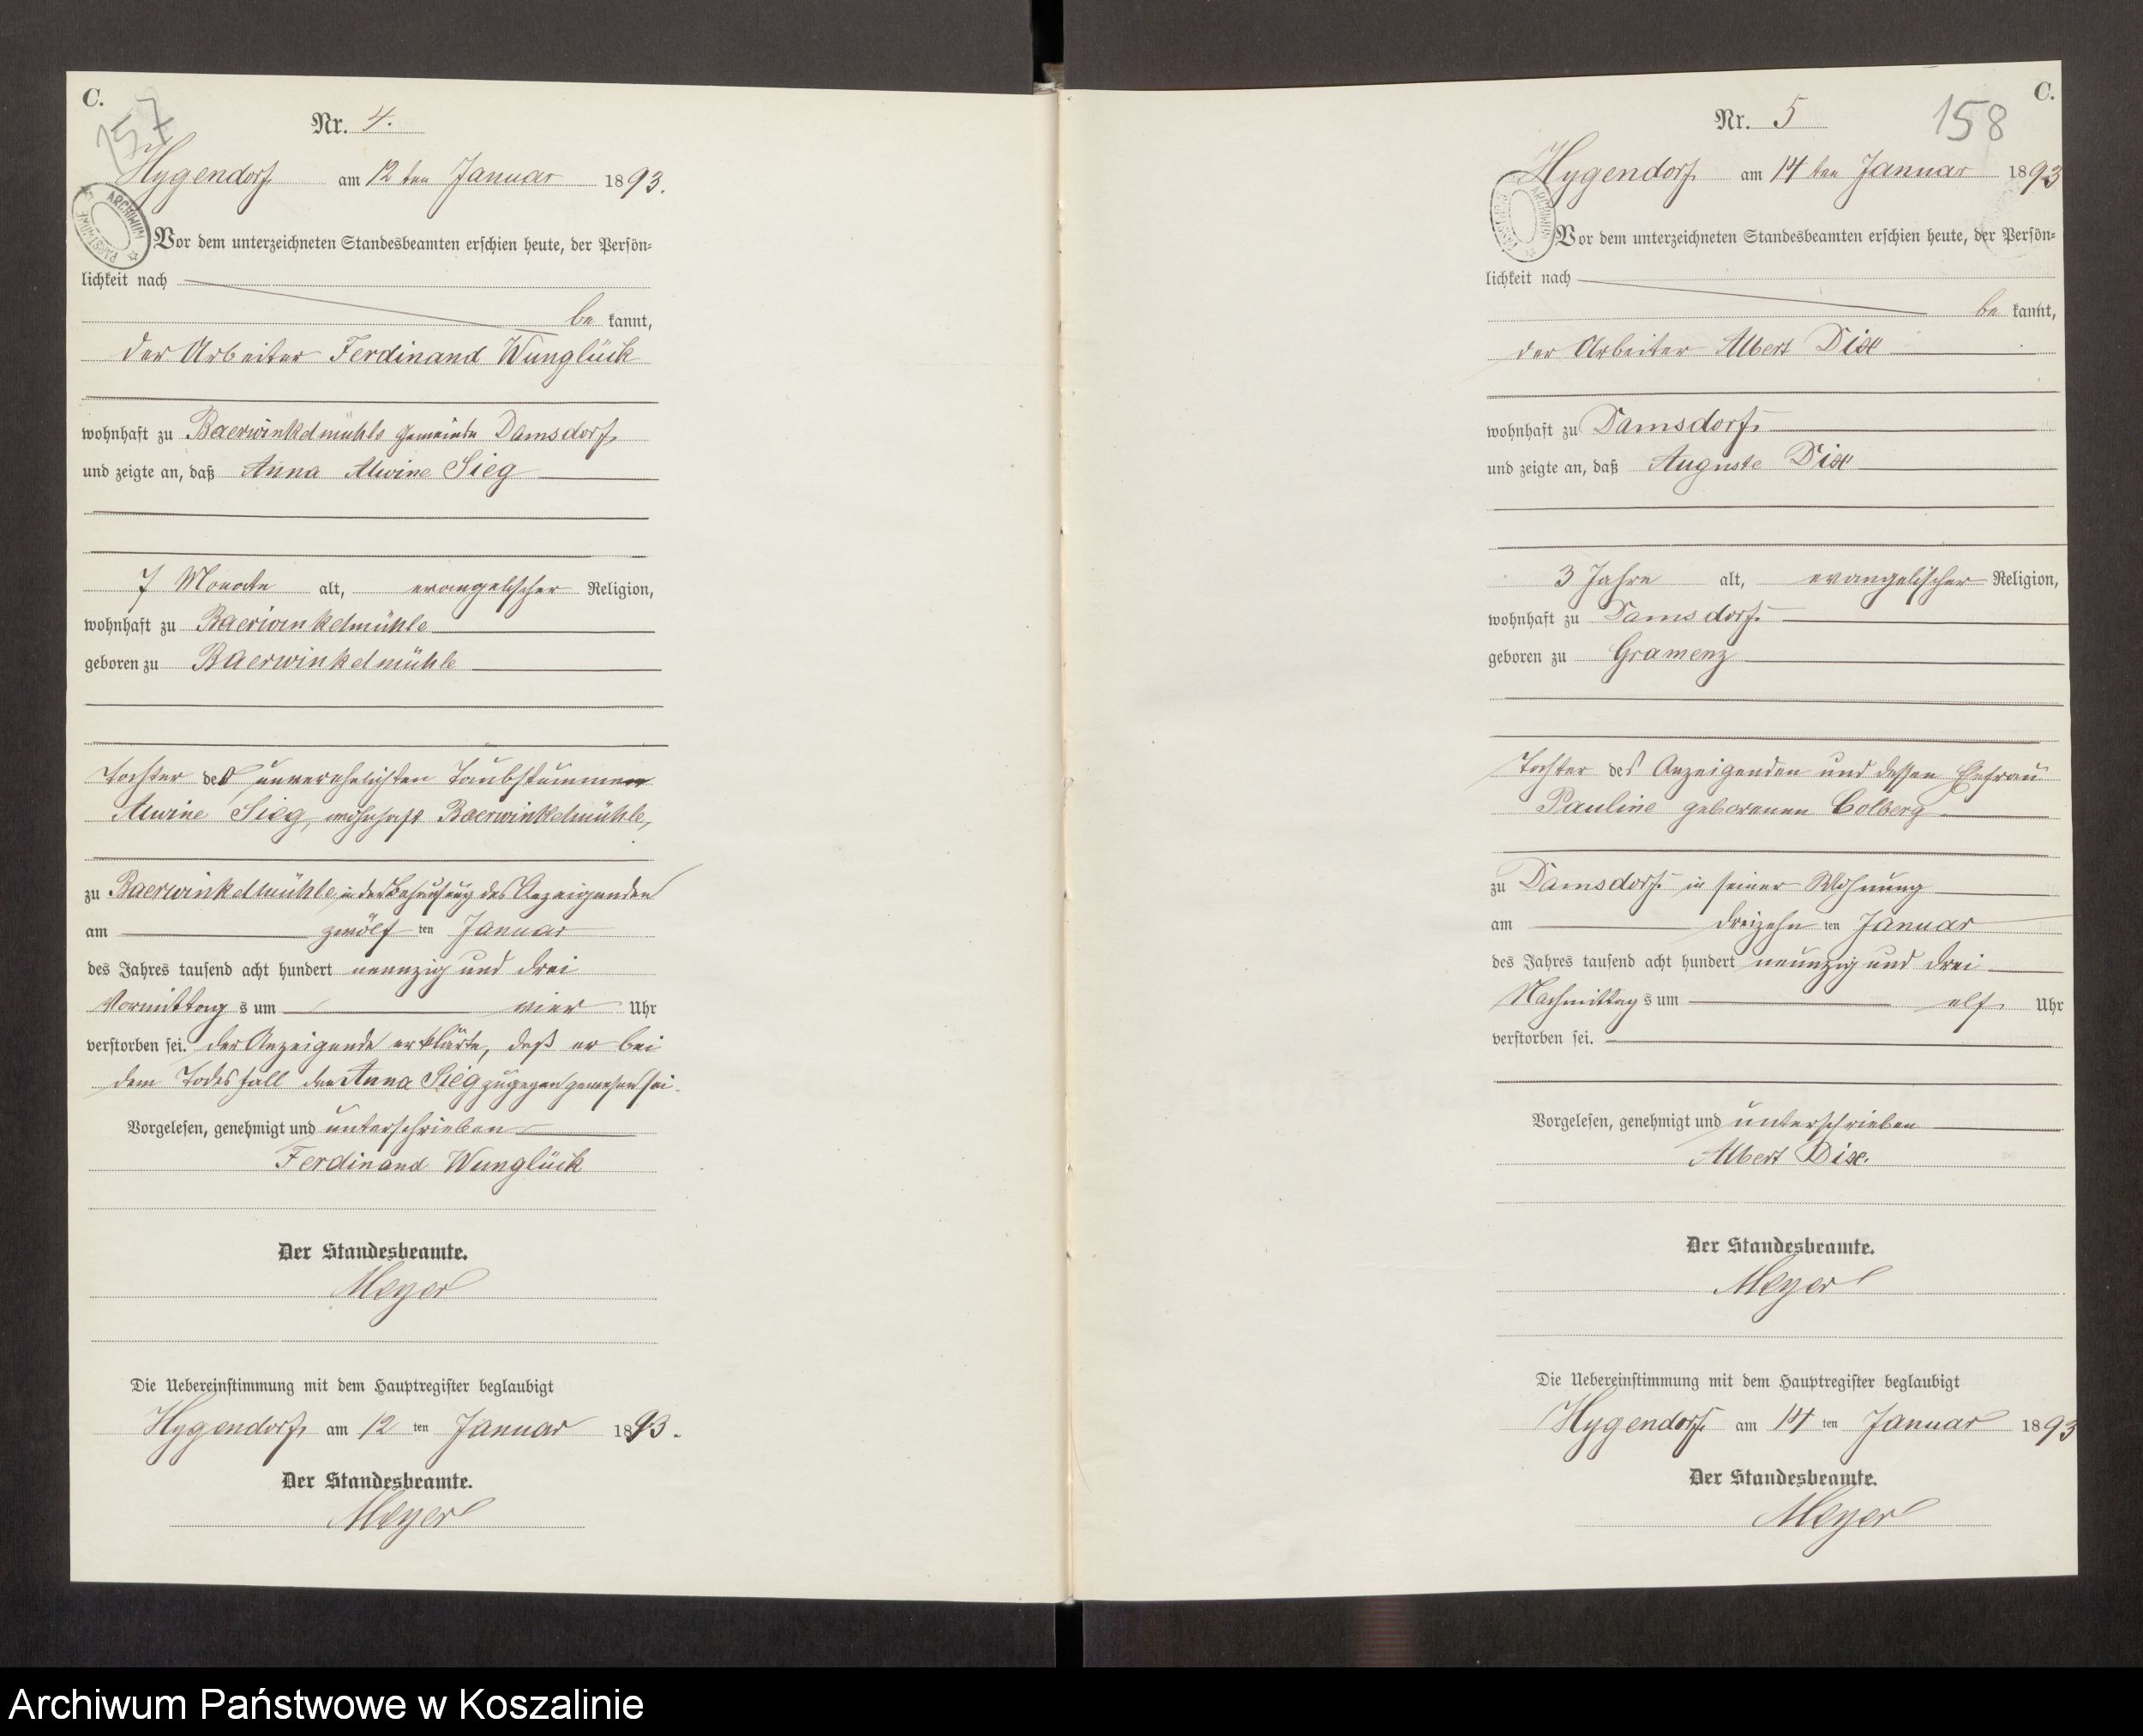 C.
157
Nr. 4.
Hygendorf am 12 ten Januar 1893.
ARCHIWUM PAŃSTWOWE
Vor dem unterzeichneten Standesbeamten erschien heute, der Persön=
lichkeit nach
be kannt,
der Arbeiter Ferdinand Wunglück
wohnhaft zu Baerwinkelmühle Gemeinde Damsdorf,
und zeigte an, daß Anna Alwine Sieg
7 Monate alt, evangelischer Religion,
wohnhaft zu Baerwinkelmühle
geboren zu Baerwinkelmühle
Tochter der unverehelichten Taubstummen
Alwine Sieg, wohnhaft Baerwinkelmühle,
zu Baerwinkelmühle in der Behausung des Anzeigenden
am zwölf ten Januar
des Jahres tausend acht hundert neunzig und drei
Vormittag s um vier Uhr
verstorben sei. der Anzeigende erklärte, daß er bei
dem Todesfall der Anna Sieg zugegen gewesen sei.
Vorgelesen, genehmigt und unterschrieben
Ferdinand Wunglück
Der Standesbeamte.
Meyer
Die Uebereinstimmung mit dem Hauptregister beglaubigt
Hygendorf, am 12 ten Januar 1893.
Der Standesbeamte.
Meyer
C.
158
Nr. 5
Hygendorf am 14 ten Januar 1893
ARCHIWUM PAŃSTWOWE
Vor dem unterzeichneten Standesbeamten erschien heute, der Persön=
lichkeit nach
be kannt,
der Arbeiter Albert Dix
wohnhaft zu Damsdorf
und zeigte an, daß Auguste Dix
3 Jahre alt, evangelischer Religion,
wohnhaft zu Damsdorf
geboren zu Gramenz
Tochter des Anzeigenden und dessen Ehefrau
Pauline geborenen Colberg
zu Damsdorf in seiner Wohnung
am dreizehn ten Januar
des Jahres tausend acht hundert neunzig und drei
Nachmittag s um elf Uhr
verstorben sei.
Vorgelesen, genehmigt und unterschrieben
Albert Dix.
Der Standesbeamte.
Meyer
Die Uebereinstimmung mit dem Hauptregister beglaubigt
Hygendorf am 14 ten Januar 1893
Der Standesbeamte.
Meyer
Archiwum Państwowe w Koszalinie